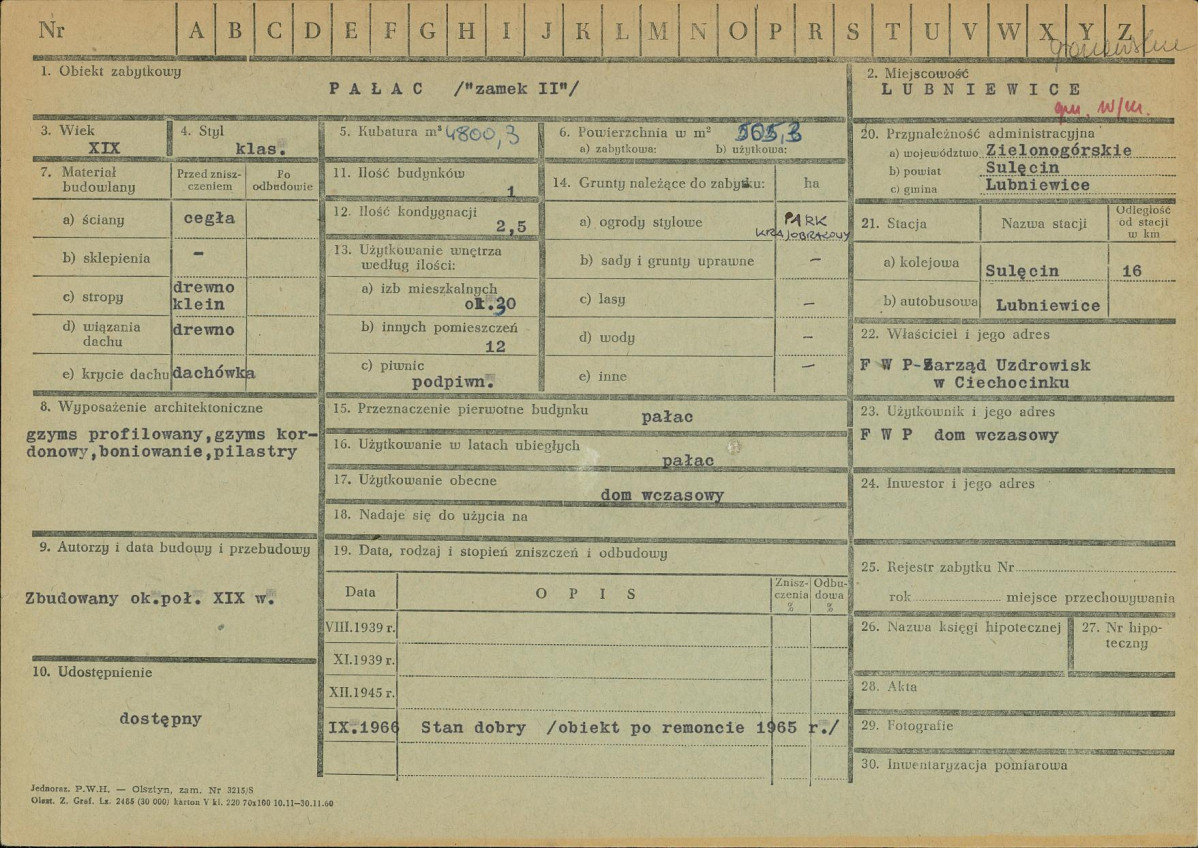 Nr A B C D E F G H I J K L M N O P R S T U V W X Y Z
1. Obiekt zabytkowy
PAŁAC /"zamek II"/
2. Miejscowość
LUBNIEWICE
gm. w/m.
3. Wiek
XIX
4. Styl
klas.
5. Kubatura m³ 4800,3
6. Powierzchnia w m² 565,3
a) zabytkowa: b) użytkowa:
7. Materiał budowlany
Przed znisz-
czeniem
Po
odbudowie
a) ściany cegła
b) sklepienia –
c) stropy drewno
klein
d) wiązania
dachu drewno
e) krycie dachu dachówka
8. Wyposażenie architektoniczne
gzyms profilowany,gzyms kor-
donowy,boniowanie,pilastry
9. Autorzy i data budowy i przebudowy
Zbudowany ok.poł. XIX w.
10. Udostępnienie
dostępny
11. Ilość budynków
1
12. Ilość kondygnacji
2,5
13. Użytkowanie wnętrza
według ilości:
a) izb mieszkalnych
ok.30
b) innych pomieszczeń
12
c) piwnic
podpiwn.
14. Grunty należące do zabytku: ha
a) ogrody stylowe PARK
KRAJOBRAZOWY
b) sady i grunty uprawne –
c) lasy –
d) wody –
e) inne –
15. Przeznaczenie pierwotne budynku pałac
16. Użytkowanie w latach ubiegłych
pałac
17. Użytkowanie obecne
dom wczasowy
18. Nadaje się do użycia na
19. Data, rodzaj i stopień zniszczeń i odbudowy
Data OPIS Znisz-
czenia
% Odbu-
dowa
%
VIII.1939 r.
XI.1939 r.
XII.1945 r.
IX.1966 Stan dobry /obiekt po remoncie 1965 r./
20. Przynależność administracyjna
a) województwo Zielonogórskie
b) powiat Sulęcin
c) gmina Lubniewice
21. Stacja Nazwa stacji Odległość
od stacji
w km
a) kolejowa Sulęcin 16
b) autobusowa Lubniewice
22. Właściciel i jego adres
F W P-Zarząd Uzdrowisk
w Ciechocinku
23. Użytkownik i jego adres
F W P dom wczasowy
24. Inwestor i jego adres
25. Rejestr zabytku Nr
rok miejsce przechowywania
26. Nazwa księgi hipotecznej
27. Nr hipo-
teczny
28. Akta
29. Fotografie
30. Inwentaryzacja pomiarowa
Jednoraz. P.W.H. — Olsztyn, zam. Nr 3215/S
Olszt. Z. Graf. Lz. 2455 (30 000) karton V kl. 220 70x100 10.11—30.11.60